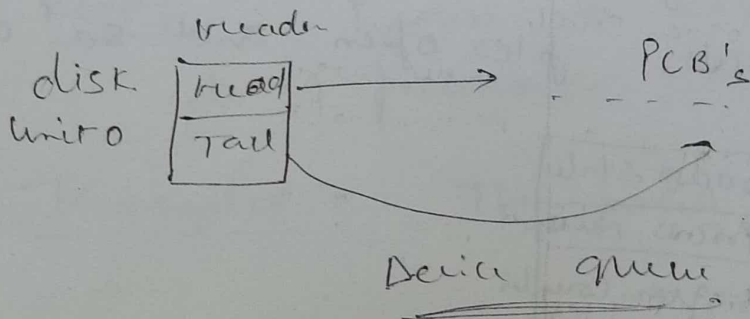 Header
disk
unit 0
Head
Tail
PCB's
Device queue